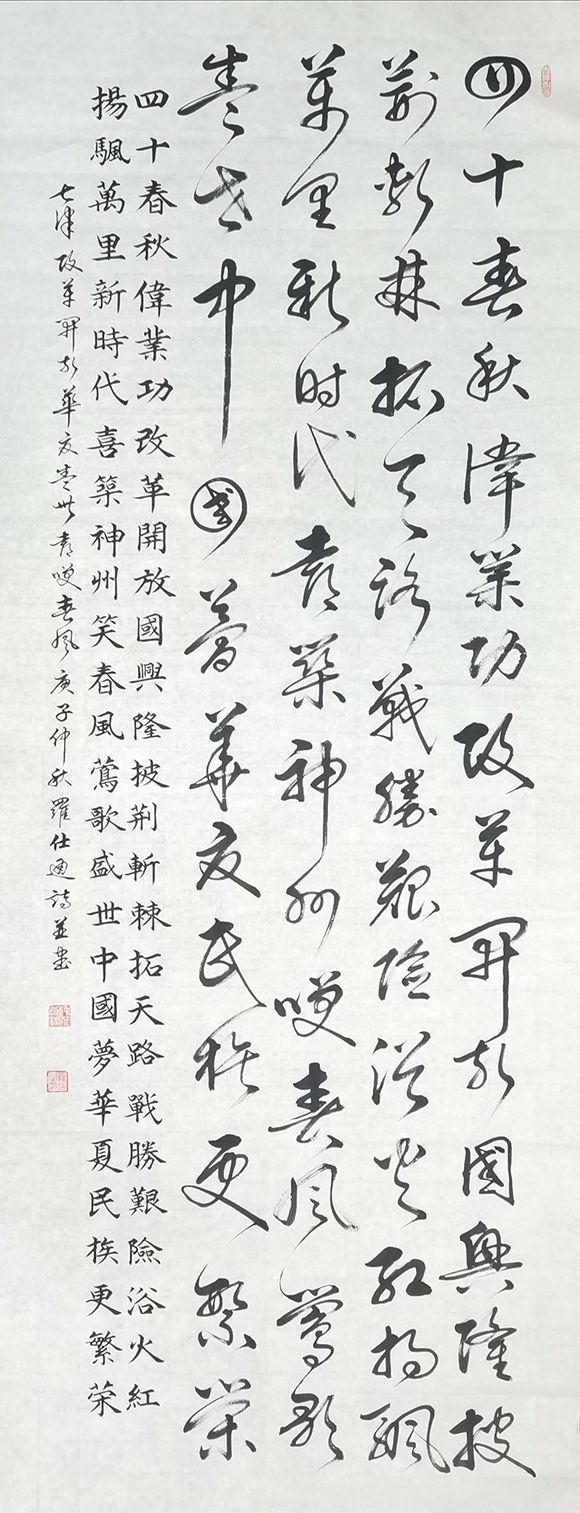 四十春秋偉業功改革開放國興隆披
荆斬棘拓天路戰勝艱險浴火紅揚颿
萬里新时代喜築神州笑春風鶯歌
盛世中國夢華夏民族更繁榮
四十春秋偉業功改革開放國興隆披荆斬棘拓天路戰勝艱險浴火紅
揚颿萬里新時代喜築神州笑春風鶯歌盛世中國夢華夏民族更繁荣
七律改革開放華夏盛世喜笑春風庚子仲秋羅仕通詩并書